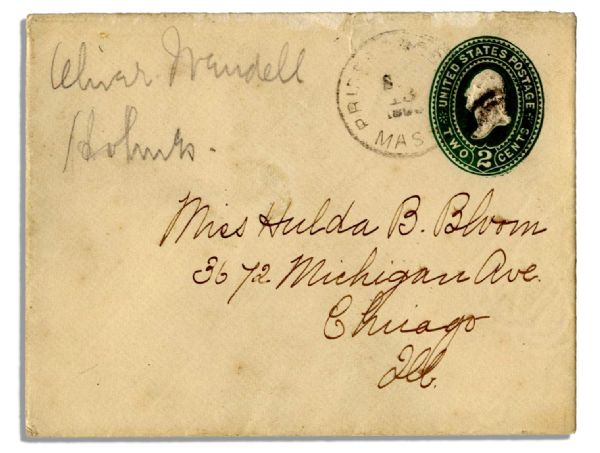 Oliver Wendell
Holmes.
UNITED STATES POSTAGE
TWO 2 CENTS
MAS
Miss Hulda B. Bloom
3672 Michigan Ave.
Chicago
Ill.